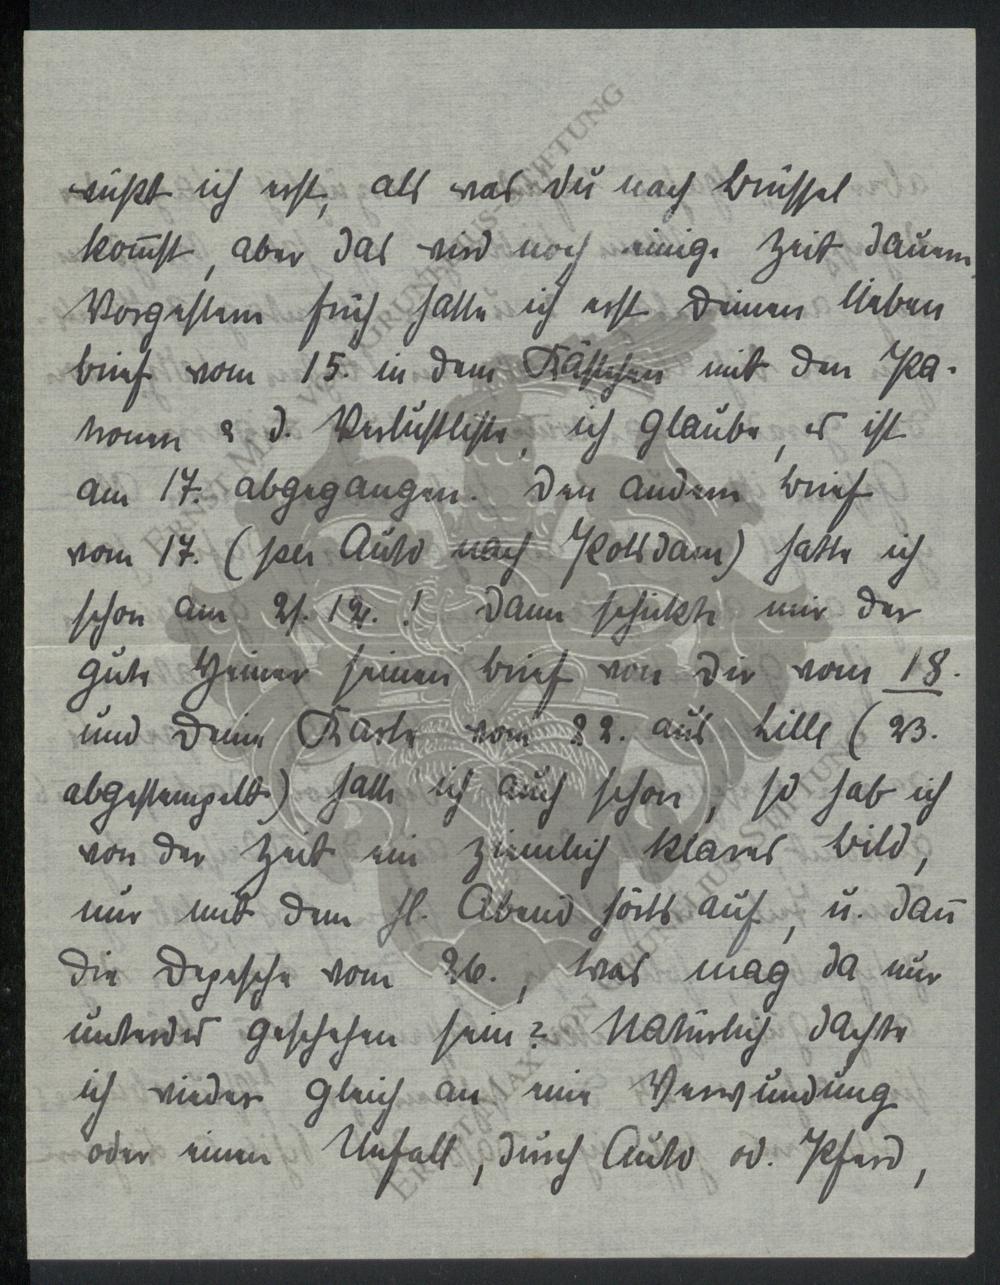 wüßt ich erst, als was Du nach Brüssel
kom̄st, aber das wird noch einige Zeit dauern.
Vorgestern früh hatte ich erst Deinen lieben
Brief vom 15. in dem Kästchen mit den Pa-
tronen & d. Verlustliste, ich glaube, er ist
am 17. abgegangen. Den andern Brief
vom 17. (per Auto nach Potsdam) hatte ich
schon am 21. 12. ! Dann schickte mir der
gute Heiner seinen Brief von Dir vom 18.
und Deine Karte vom 22. aus Lille (23.
abgestempelt) hatte ich auch schon, so hab ich
von der Zeit ein ziemlich klares Bild,
nur mit dem hl. Abend hörts auf, u. dan̄
die Depesche vom 26., was mag da nur
unterdes geschehen sein? Natürlich dachte
ich wieder gleich an eine Verwundung
oder einen Unfall, durch Auto od. Pferd,
ERNST MAX VON GRUNELIUS-STIFTUNG
ERNST MAX VON GRUNELIUS-STIFTUNG